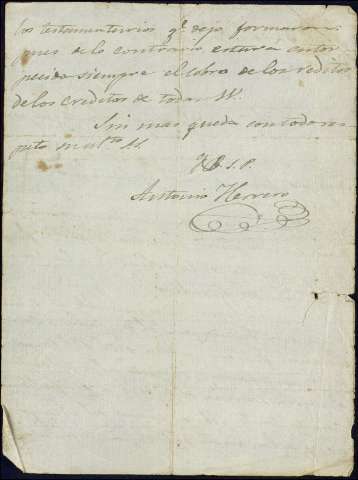 los testamentarios qe dejo formaran:
pues de lo contrario estara entor
pecida siempre el cobro de los reditos
de los creditos de todas VV.
Sin mas queda con todo res
peto su atto
S. P.
Antonio Herrero